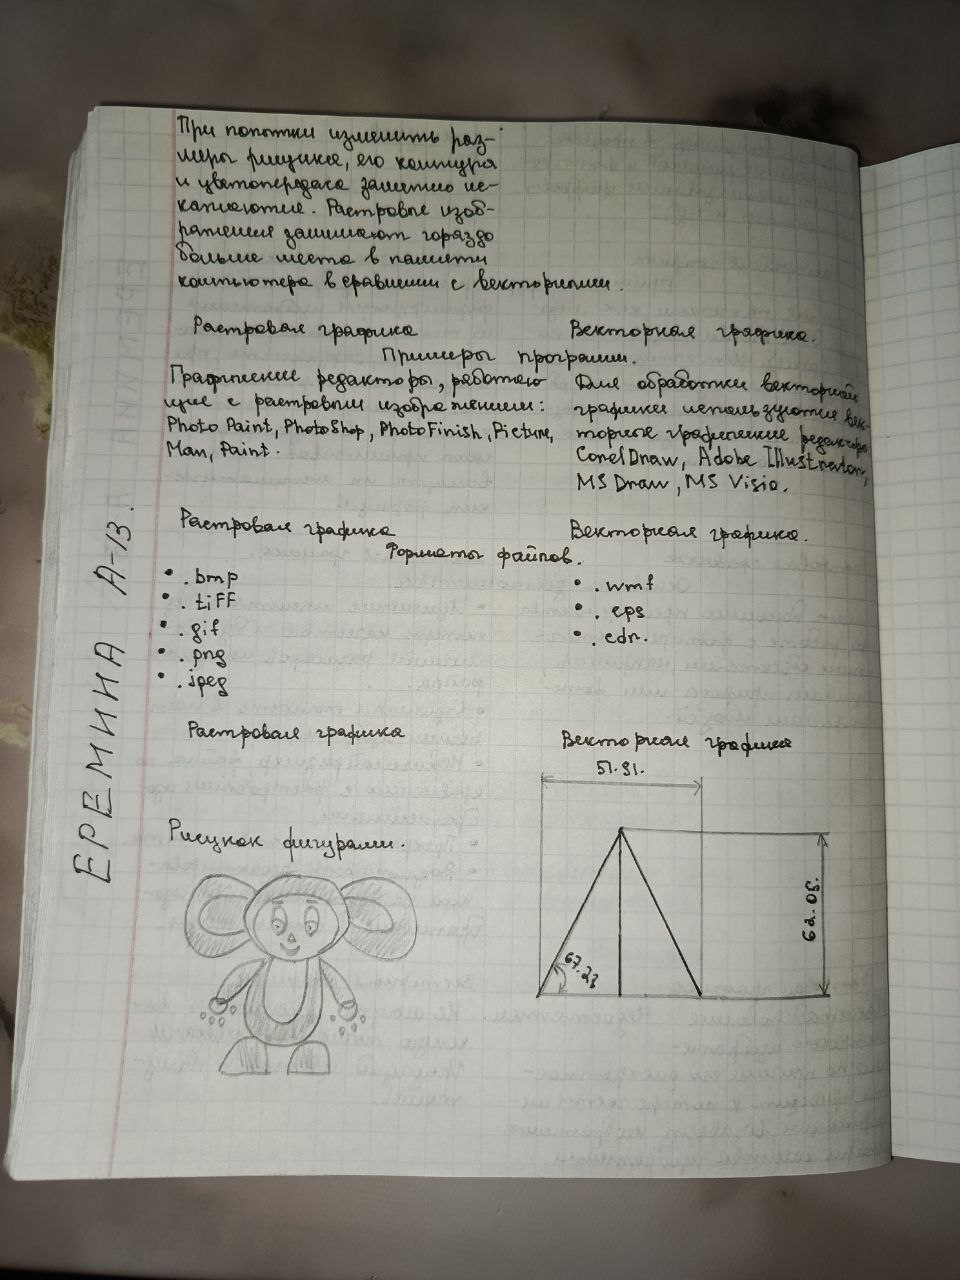 При попытки изменить раз-
меры рисунка, его контура
и цветопередаса заметно ис-
кажаются. Растровые изоб-
ражения занимают гораздо
больше места в памяти
компьютера в сравнении с векторными.
Растровая графика Векторная графика.
Примеры программ.
Графические редакторы, работаю
щие с растровым изображением:
Photo Paint, PhotoShop, PhotoFinish, Picture,
Man, Paint.
Для обработки векторной
графики используются век-
торные графические редакторы
CorelDraw, Adobe Illustrator,
MS Draw, MS Visio.
Растровая графика Векторная графика.
Форматы файлов.
• .bmp
• .tiFF
• .gif
• .png
• .jpeg
• .wmf
• .eps
• .cdr.
Растровая графика Векторная графика
Рисунок фигурами.
51.91.
62.05.
67.23
ЕРЕМИНА А-13.